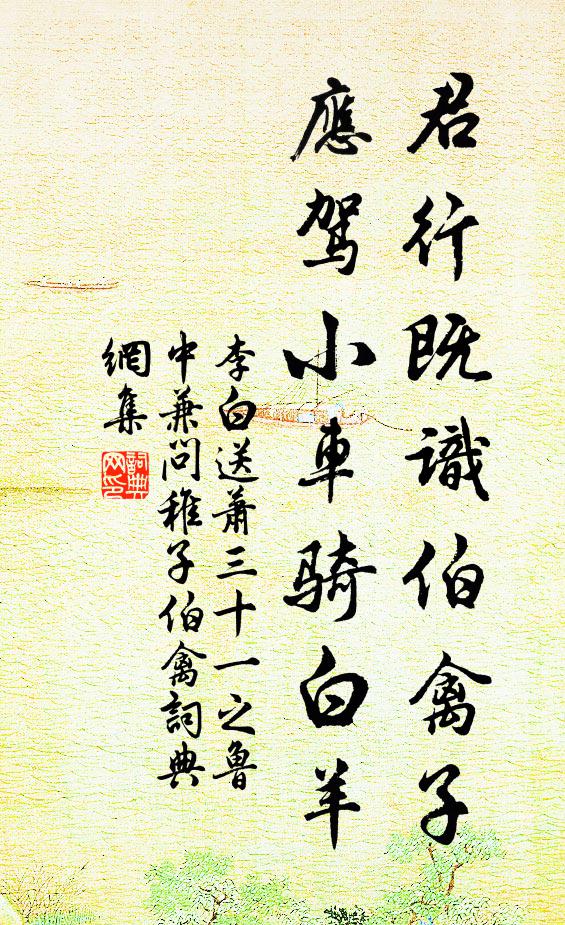 君行既識伯禽子
應駕小車騎白羊
李白送蕭三十一之魯
中兼問稚子伯禽詞典
網集
詞典
网印